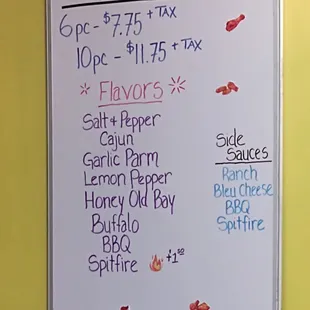 6pc - $7.75 + TAX
10pc - $11.75 + TAX
Flavors
Salt & Pepper
Cajun
Garlic Parm
Lemon Pepper
Honey Old Bay
Buffalo
BBQ
Spitfire +1.00
Side
Sauces
Ranch
Bleu Cheese
BBQ
Spitfire